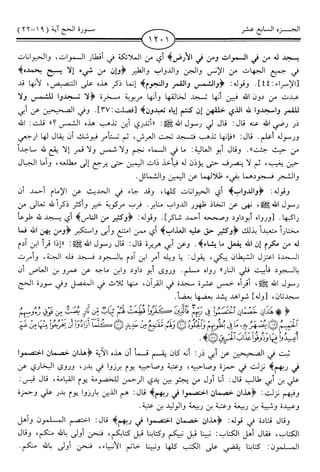 الجـــزء السابع عشر
سـورة الحج آية (١٩-٢٢)
١٢٠١
يسجد له من في السموات ومن في الأرض﴾ أي من الملائكة في أقطار السموات، والحيوانات
في جميع الجهات من الإنس والجن والدواب والطير ﴿وإن من شيء إلا يسبح بحمده﴾
[الإسراء: ٤٤]. وقوله: ﴿والشمس والقمر والنجوم﴾ إنما ذكر هذه على التنصيص، لأنها قد
عبدت من دون الله فبين أنها تسجد لخالقها وأنها مربوبة مسخرة ﴿لا تسجدوا للشمس ولا
للقمر واسجدوا لله الذي خلقهن إن كنتم إياه تعبدون﴾ [فصلت: ٣٧]. وفي الصحيحين عن أبي
ذر رضي الله عنه قال: قال لي رسول الله ﷺ: «أتدري أين تذهب هذه الشمس ؟» قلت: الله
ورسوله أعلم. قال: «فإنها تذهب فتسجد تحت العرش، ثم تستأمر فيوشك أن يقال لها ارجعي
من حيث جئت». وقال أبو العالية: ما في السماء نجم ولا شمس ولا قمر إلا يقع لله ساجداً
حين يغيب، ثم لا ينصرف حتى يؤذن له فيأخذ ذات اليمين حتى يرجع إلى مطلعه، وأما الجبال
والشجر فسجودهما بفيء ظلالهما عن اليمين والشمائل.
وقوله: ﴿والدواب﴾ أي الحيوانات كلها، وقد جاء في الحديث عن الإمام أحمد أن
رسول الله ﷺ، نهى عن اتخاذ ظهور الدواب منابر. فرب مركوبة خير وأكثر ذكراً لله تعالى من
راكبها. [ورواه أبوداود وصححه أحمد شاكر]. وقوله: ﴿وكثير من الناس﴾ أي يسجد لله طوعاً
مختاراً متعبداً بذلك ﴿وكثير حق عليه العذاب﴾ أي ممن امتنع وأبى واستكبر ﴿ومن يهن الله فما
له من مكرم إن الله يفعل ما يشاء﴾. وعن أبي هريرة قال: قال رسول الله ﷺ: «إذا قرأ ابن آدم
السجدة اعتزل الشيطان يبكي، يقول: يا ويله أمر ابن آدم بالسجود فسجد فله الجنة، وأمرت
بالسجود فأبيت فلي النار» رواه مسلم. وروى أبو داود وابن ماجه عن عمرو بن العاص أن
رسول الله ﷺ، أقرأه خمس عشرة سجدة في القرآن، منها ثلاث في المفصل وفي سورة الحج
سجدتان، [وله] شواهد يشد بعضها بعضاً.
ثبت في الصحيحين عن أبي ذر: أنه كان يقسم قسماً أن هذه الآية ﴿هذان خصمان اختصموا
في ربهم﴾ نزلت في حمزة وصاحبيه، وعتبة وصاحبيه يوم برزوا في بدر، وروى البخاري عن
علي بن أبي طالب قال: أنا أول من يجثو بين يدي الرحمن للخصومة يوم القيامة، قال قيس:
وفيهم نزلت: ﴿هذان خصمان اختصموا في ربهم﴾ قال: هم الذين بارزوا يوم بدر علي وحمزة
وعبيدة وشيبة بن ربيعة وعتبة بن ربيعة والوليد بن عتبة.
وقال قتادة في قوله: ﴿هذان خصمان اختصموا في ربهم﴾ قال: اختصم المسلمون وأهل
الكتاب، فقال أهل الكتاب: نبينا قبل نبيكم وكتابنا قبل كتابكم، فنحن أولى بالله منكم، وقال
المسلمون: كتابنا يقضي على الكتب كلها ونبينا خاتم الأنبياء، فنحن أولى بالله منكم.